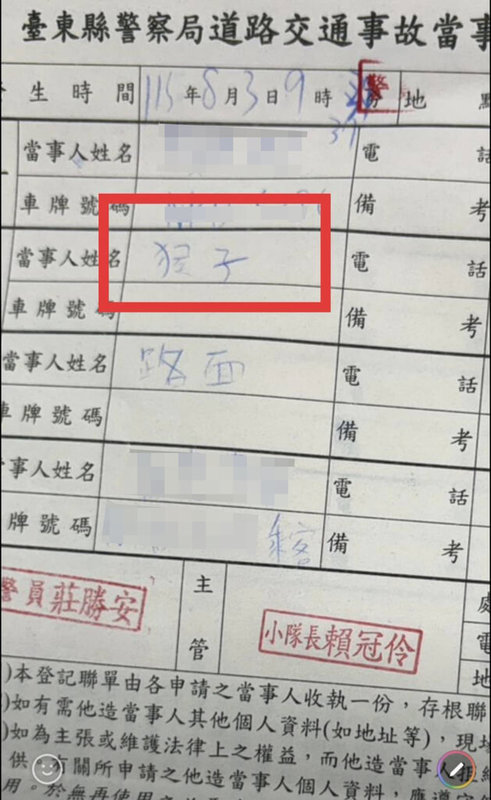 臺東縣警察局道路交通事故當事
生時間 115年8月3日9時37分 地點
當事人姓名 電話
車牌號碼 備考
當事人姓名 猴子 電話
車牌號碼 備考
當事人姓名 路面 電話
車牌號碼 備考
當事人姓名 電話
牌號碼 乘客 備考
警員莊勝安 主管 小隊長賴冠伶 處
電
地
)本登記聯單由各申請之當事人收執一份，存根聯
)如有需他造當事人其他個人資料(如地址等)，現場
)如為主張或維護法律上之權益，而他造當事人拒絕
供 有關所申請之他造當事人個人資料，應遵守
用。於無再使用